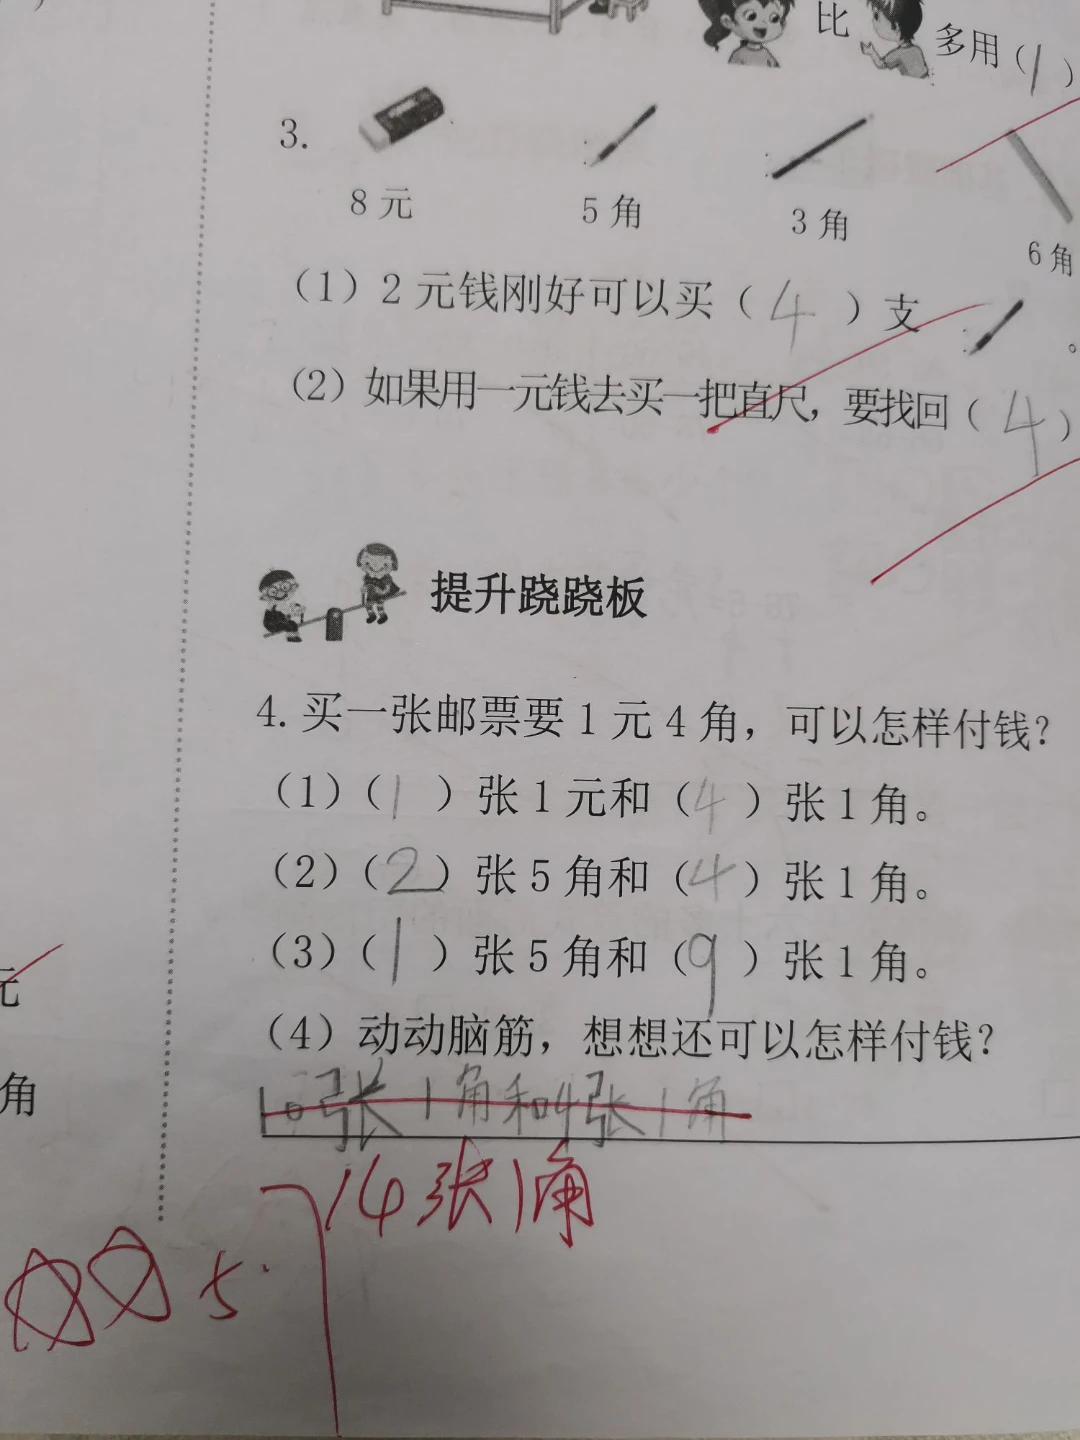 比 多用（1）
3.
8元 5角 3角 6角
（1）2元钱刚好可以买（4）支 。
（2）如果用一元钱去买一把直尺，要找回（4）
提升跷跷板
4.买一张邮票要1元4角，可以怎样付钱？
（1）（1）张1元和（4）张1角。
（2）（2）张5角和（4）张1角。
（3）（1）张5角和（9）张1角。
元
（4）动动脑筋，想想还可以怎样付钱？
角
10张1角和4张1角
14张1角
5